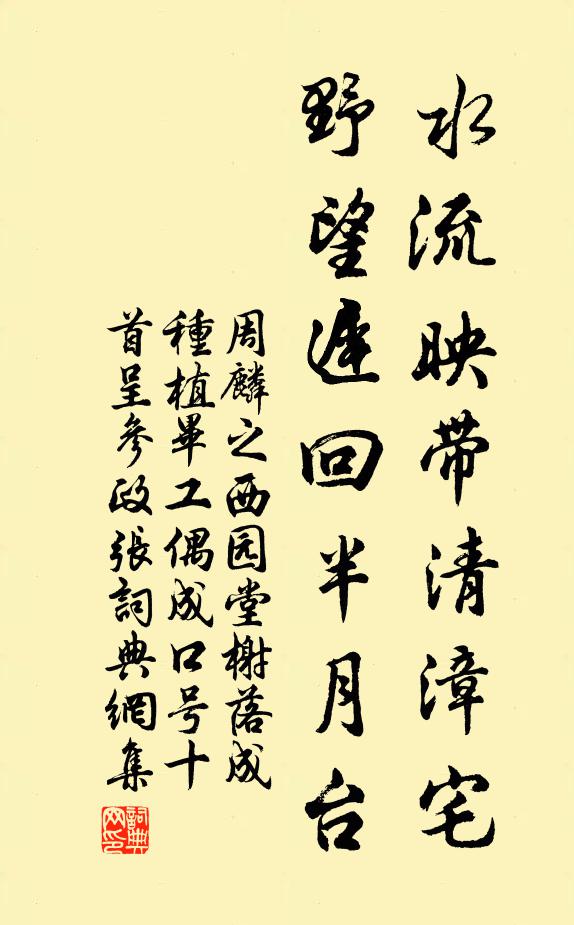 水流映带清漳宅
野望遲回半月台
周麟之西园堂榭落成
種植畢工偶成口号十
首呈參政張詞典網集
詞典网印